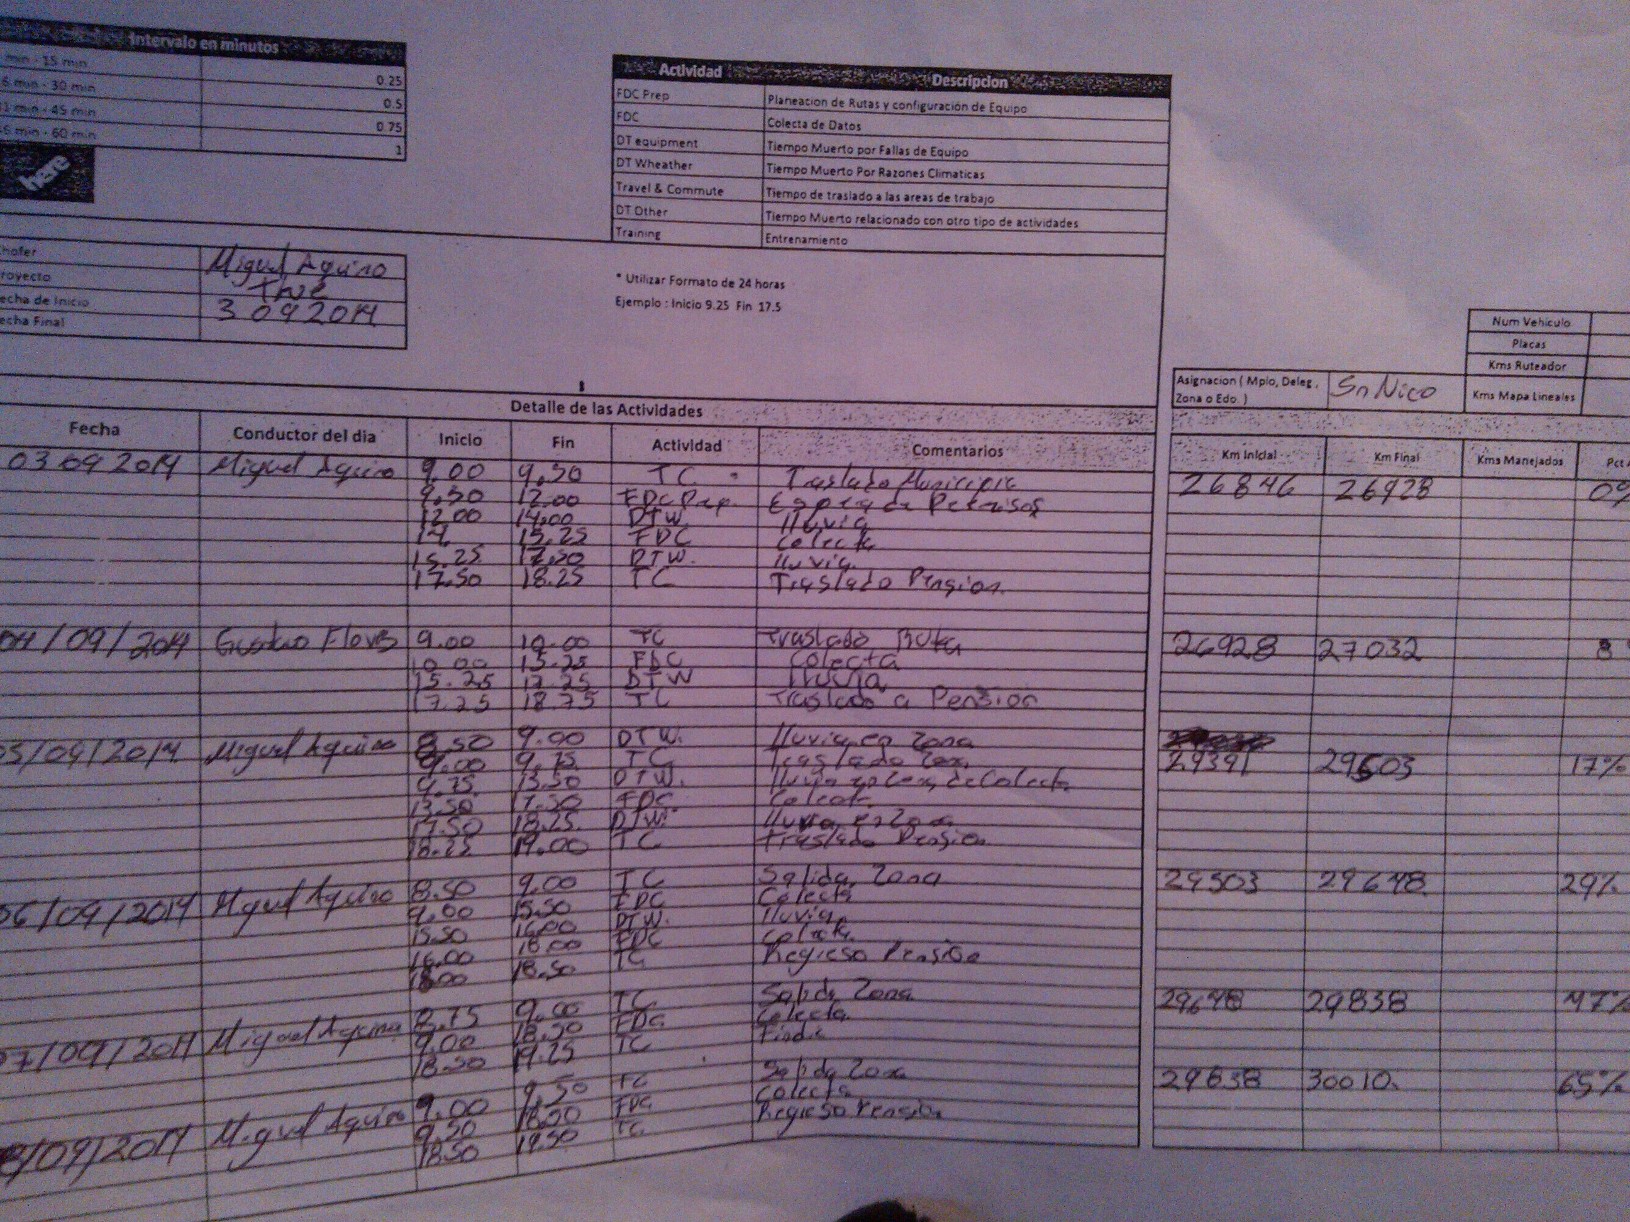 Intervalo en minutos
min - 15 min 0.25
6 min - 30 min 0.5
1 min - 45 min 0.75
6 min - 60 min 1
here
Actividad Descripcion
FDC Prep Planeacion de Rutas y configuración de Equipo
FDC Colecta de Datos
DT equipment Tiempo Muerto por Fallas de Equipo
DT Wheather Tiempo Muerto Por Razones Climaticas
Travel & Commute Tiempo de traslado a las areas de trabajo
DT Other Tiempo Muerto relacionado con otro tipo de actividades
Training Entrenamiento
hofer Miguel Aquino
royecto True
echa de Inicio 3 09 2014
echa Final
* Utilizar Formato de 24 horas
Ejemplo : Inicio 9.25 Fin 17.5
Num Vehiculo
Placas
Kms Ruteador
Kms Mapa Lineales
Asignacion ( Mpio, Deleg,
Zona o Edo. ) Sn Nico
Detalle de las Actividades
Fecha Conductor del dia Inicio Fin Actividad Comentarios Km Inicial Km Final Kms Manejados Pct
03 09 2014 Miguel Aquino 9.00 9.50 TC Traslado Municipio 26846 26928 0%
9.50 12.00 FDC Prep. Espera de Permisos
12.00 14.00 DTW. lluvia
14. 15.25 FDC Colecta
15.25 17.50 DTW. lluvia
17.50 18.25 TC Traslado Pension
04/09/2014 Gustavo Flores 9.00 10.00 TC Traslado Ruta 26928 27032 8
10.00 15.25 FDC Colecta
15.25 17.25 DTW lluvia
17.25 18.75 TC Traslado a Pension
5/09/2014 Miguel Aquino 8.50 9.00 DTW. lluvia en zona
9.00 9.75 TC Traslado Zona 29391 29503 17%
9.75 13.50 DTW. lluvia zona de Colecta
13.50 17.50 FDC. Colecta
17.50 18.25 DTW. lluvia en zona
18.25 19.00 TC Traslado Pension
06/09/2014 Miguel Aquino 8.50 9.00 TC Salida Zona 29503 29648 29%
9.00 15.50 FDC Colecta
15.50 16.00 DTW. lluvia
16.00 18.00 FDC Colecta
18.00 18.50 TC Regreso Pension
7/09/2014 Miguel Aquino 8.75 9.00 TC Salida Zona 29648 29838 47%
9.00 18.50 FDC Colecta
18.50 19.25 TC
8/09/2014 Miguel Aquino 9.00 9.50 TC Salida Zona 29838 30010. 65%
9.50 18.50 FDC Colecta
18.50 19.50 TC Regreso Pension